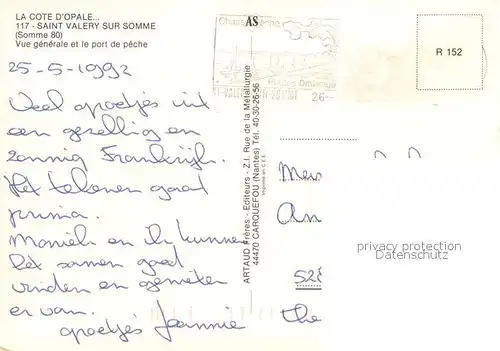 LA COTE D'OPALE...
117 - SAINT VALERY SUR SOMME
(Somme 80)
Vue générale et le port de pêche
25-5-1992
Veel groetjes uit
een gezellig en
zonnig Frankrijk.
Het tekenen gaat
prima.
en ik kunnen
het samen goed
vinden en genieten
ervan.
groetjes Jeannie
AS
26-
ARTAUD Frères - Editeurs - Z.I. Rue de la Métallurgie
44470 CARQUEFOU (Nantes) Tél. 40-30-26-56
Imprimé en C.E.E.
R 152
privacy protection
Datenschutz
528